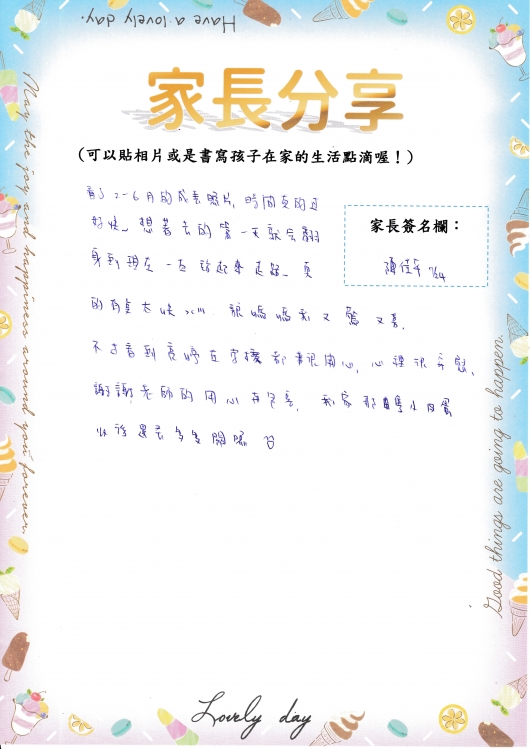 Have a lovely day.
家長分享
(可以貼相片或是書寫孩子在家的生活點滴喔！)
看了2-6月的成果照片，時間真的過
好快，想著去的第一天就會翻
身到現在一直站起來走路，真
的有真大快，讓媽媽我又驚又喜，
不過看到 在學校都很開心，心裡很安慰，
謝謝老師的用心與包容，我家那小肉
以後還是多多關照
家長簽名欄：
May the joy and happiness around you forever.
Good things are going to happen.
Lovely day